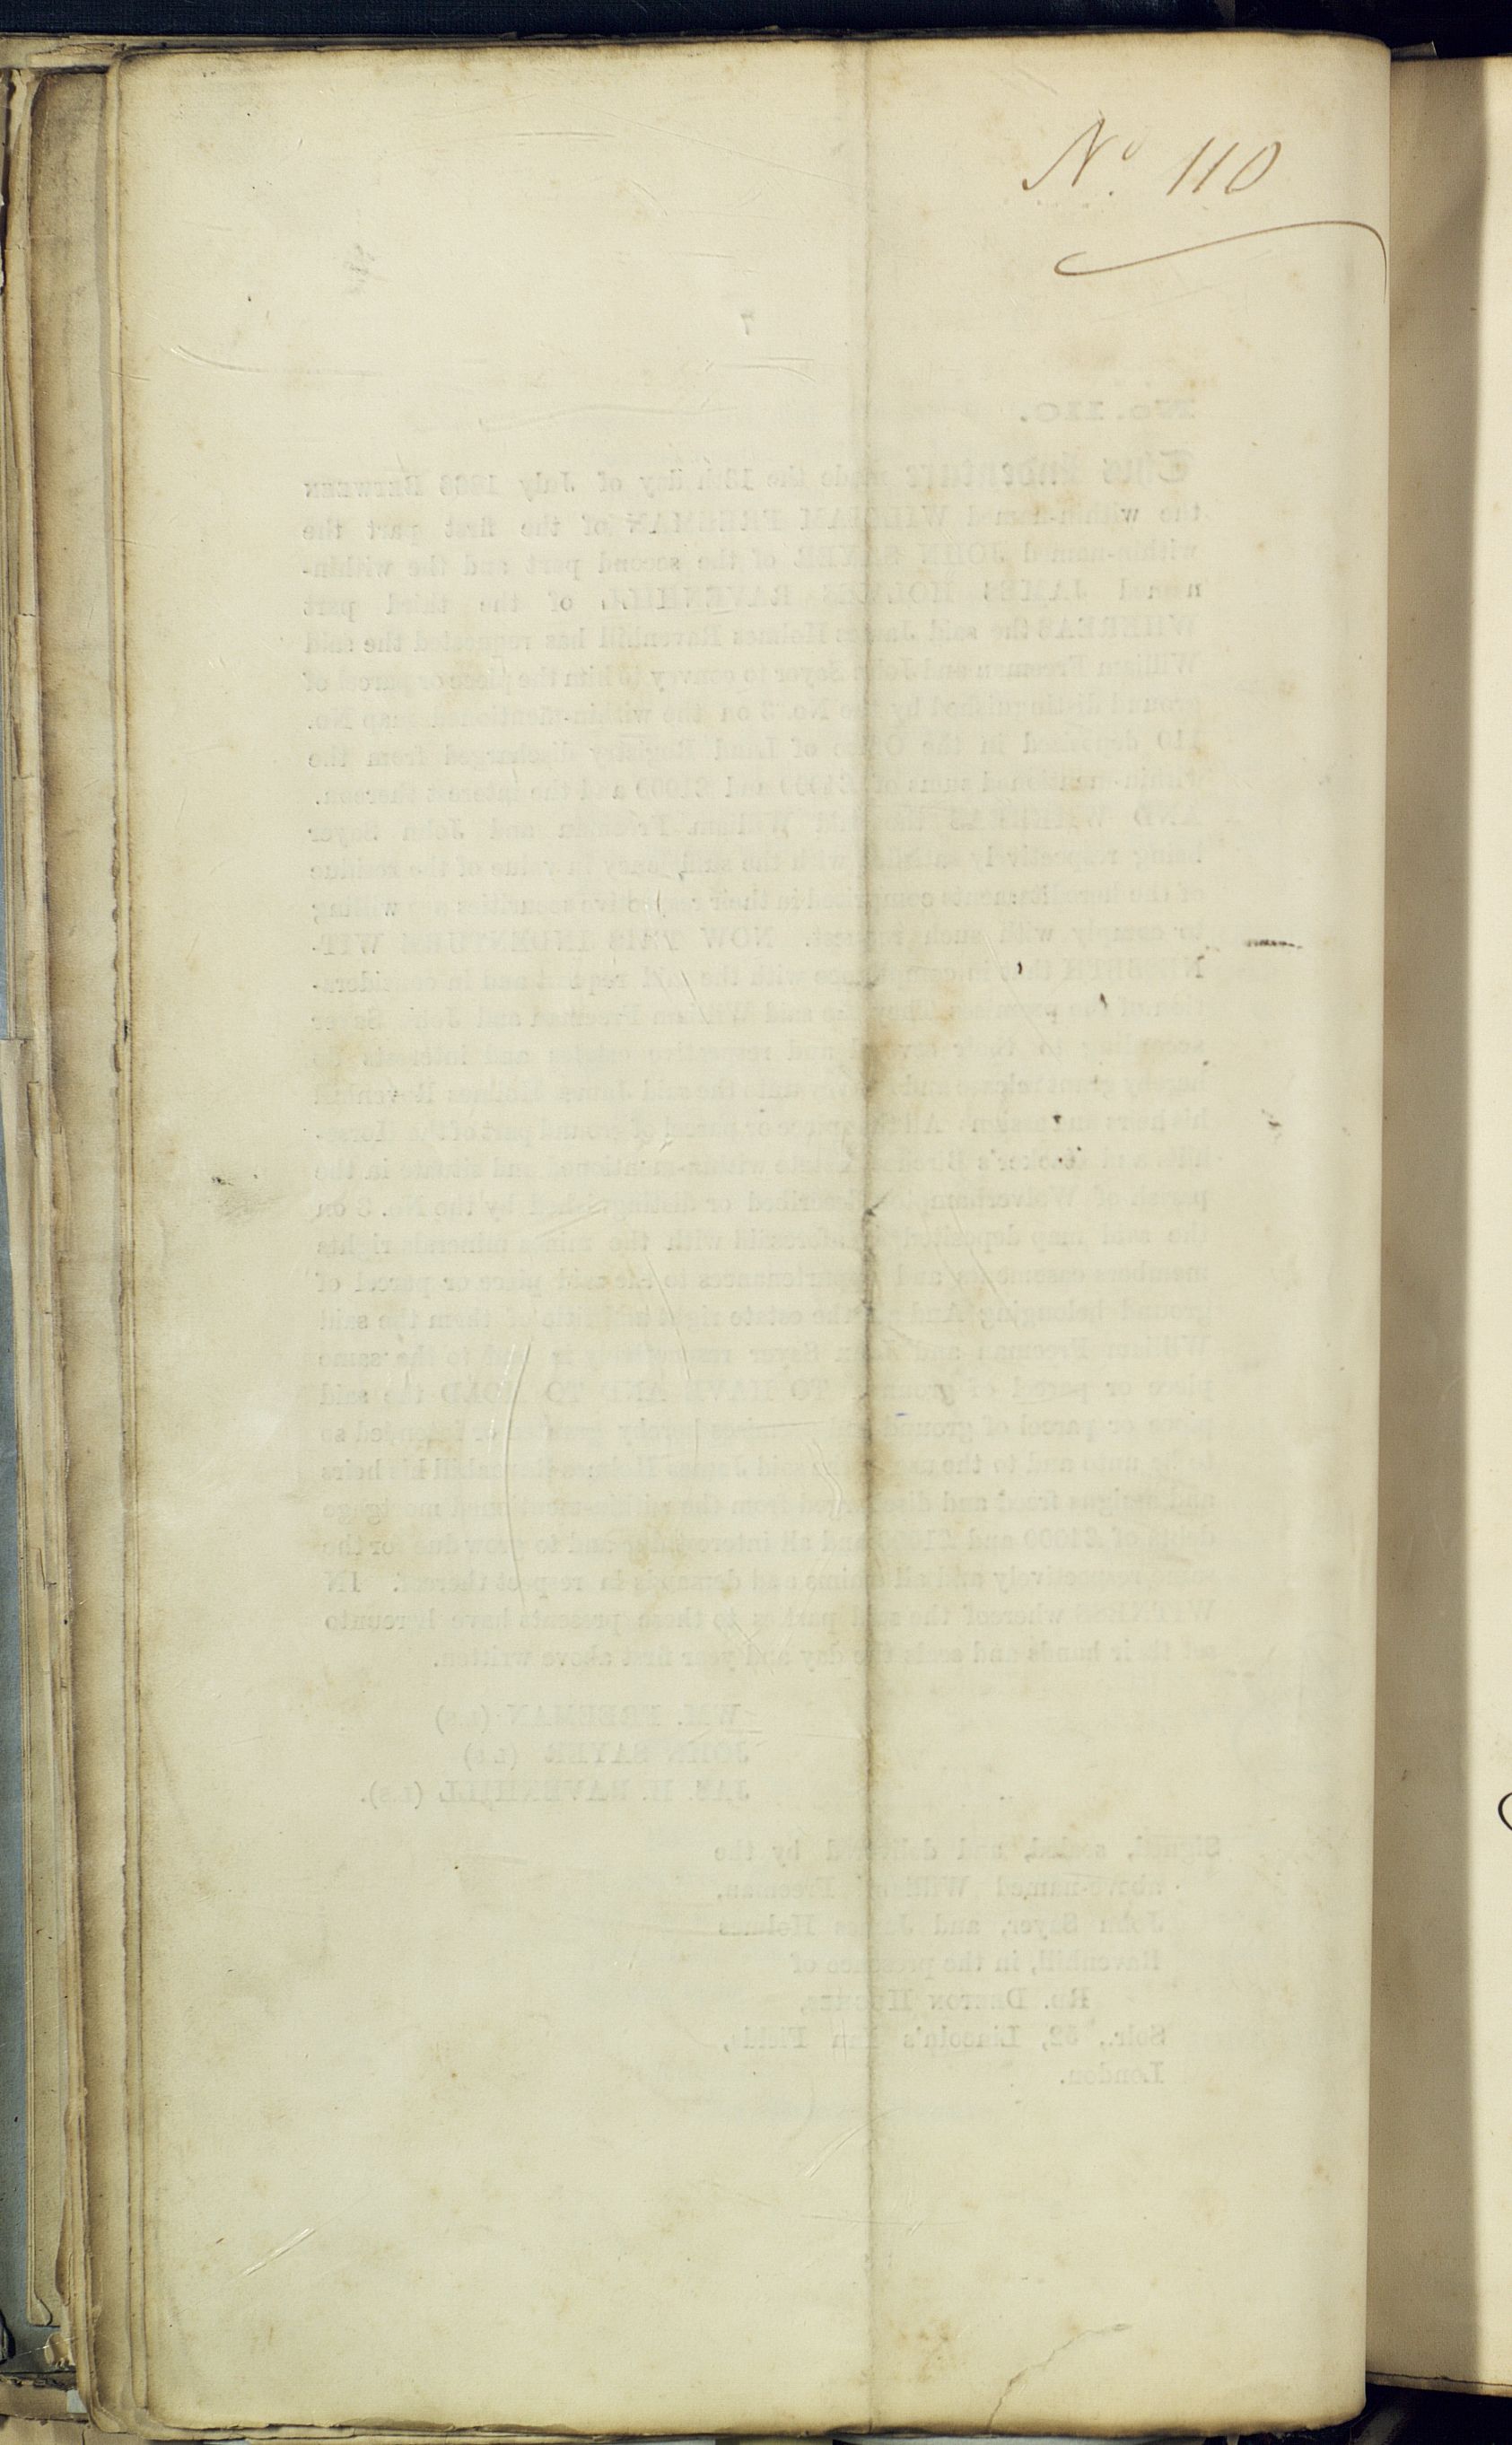 Nº 110
7
No. 110.
This Indenture made the 13th day of July 1868 BETWEEN
the within-named WILLIAM FREEMAN of the first part the
within-named JOHN SAYER of the second part and the within-
named JAMES HOLMES RAVENHILL of the third part
WHEREAS the said James Holmes Ravenhill has requested the said
William Freeman and John Sayer to convey to him the piece or parcel of
ground distinguished by the No. 3 on the within-mentioned map No.
110 deposited in the Office of Land Registry discharged from the
within-mentioned sums of £4000 and £1000 and the interest thereon.
AND WHEREAS the said William Freeman and John Sayer
being respectively satisfied with the sufficiency in value of the residue
of the hereditaments comprised in their respective securities are willing
to comply with such request. NOW THIS INDENTURE WIT-
NESSETH that in compliance with the said request and in considera-
tion of the premises they the said William Freeman and John Sayer
according to their several and respective estates and interests do
hereby grant release and convey unto the said James Holmes Ravenhill
his heirs and assigns All that piece or parcel of ground part of the Horse-
hills and Rooker's Estate within-mentioned and situate in the
parish of Wolverhampton described or distinguished by the No. 3 on
the said map deposited as aforesaid with the mines minerals rights
members easements and appurtenances to the said piece or parcel of
ground belonging And all the estate right and title of them the said
William Freeman and John Sayer respectively in and to the same
piece or parcel of ground TO HAVE AND TO HOLD the said
piece or parcel of ground and premises hereby granted or intended so
to be unto and to the use of the said James Holmes Ravenhill his heirs
and assigns freed and discharged from the within-mentioned mortgage
debts of £4000 and £1000 and all interest due and to grow due for the
same respectively and all claims and demands in respect thereof. IN
WITNESS whereof the said parties to these presents have hereunto
set their hands and seals the day and year first above written.
WM. FREEMAN (L.S)
JOHN SAYER (L.S)
JAS. H. RAVENHILL (L.S).
Signed, sealed, and delivered by the
above-named William Freeman,
John Sayer, and James Holmes
Ravenhill, in the presence of
Solr., 52, Lincoln's Inn Fields,
London.